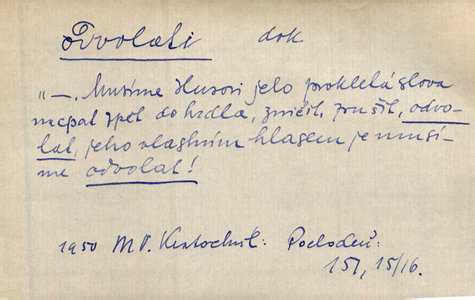 odvolati dok
„—. Musíme Husovi jeho prokletá slova
nacpat zpět do hrdla, zničit, zrušit, odvo-
lat, jeho vlastním hlasem je musí-
me odvolat!
1950 M.V. Kratochvíl: Pochodeň:
151, 15/16.